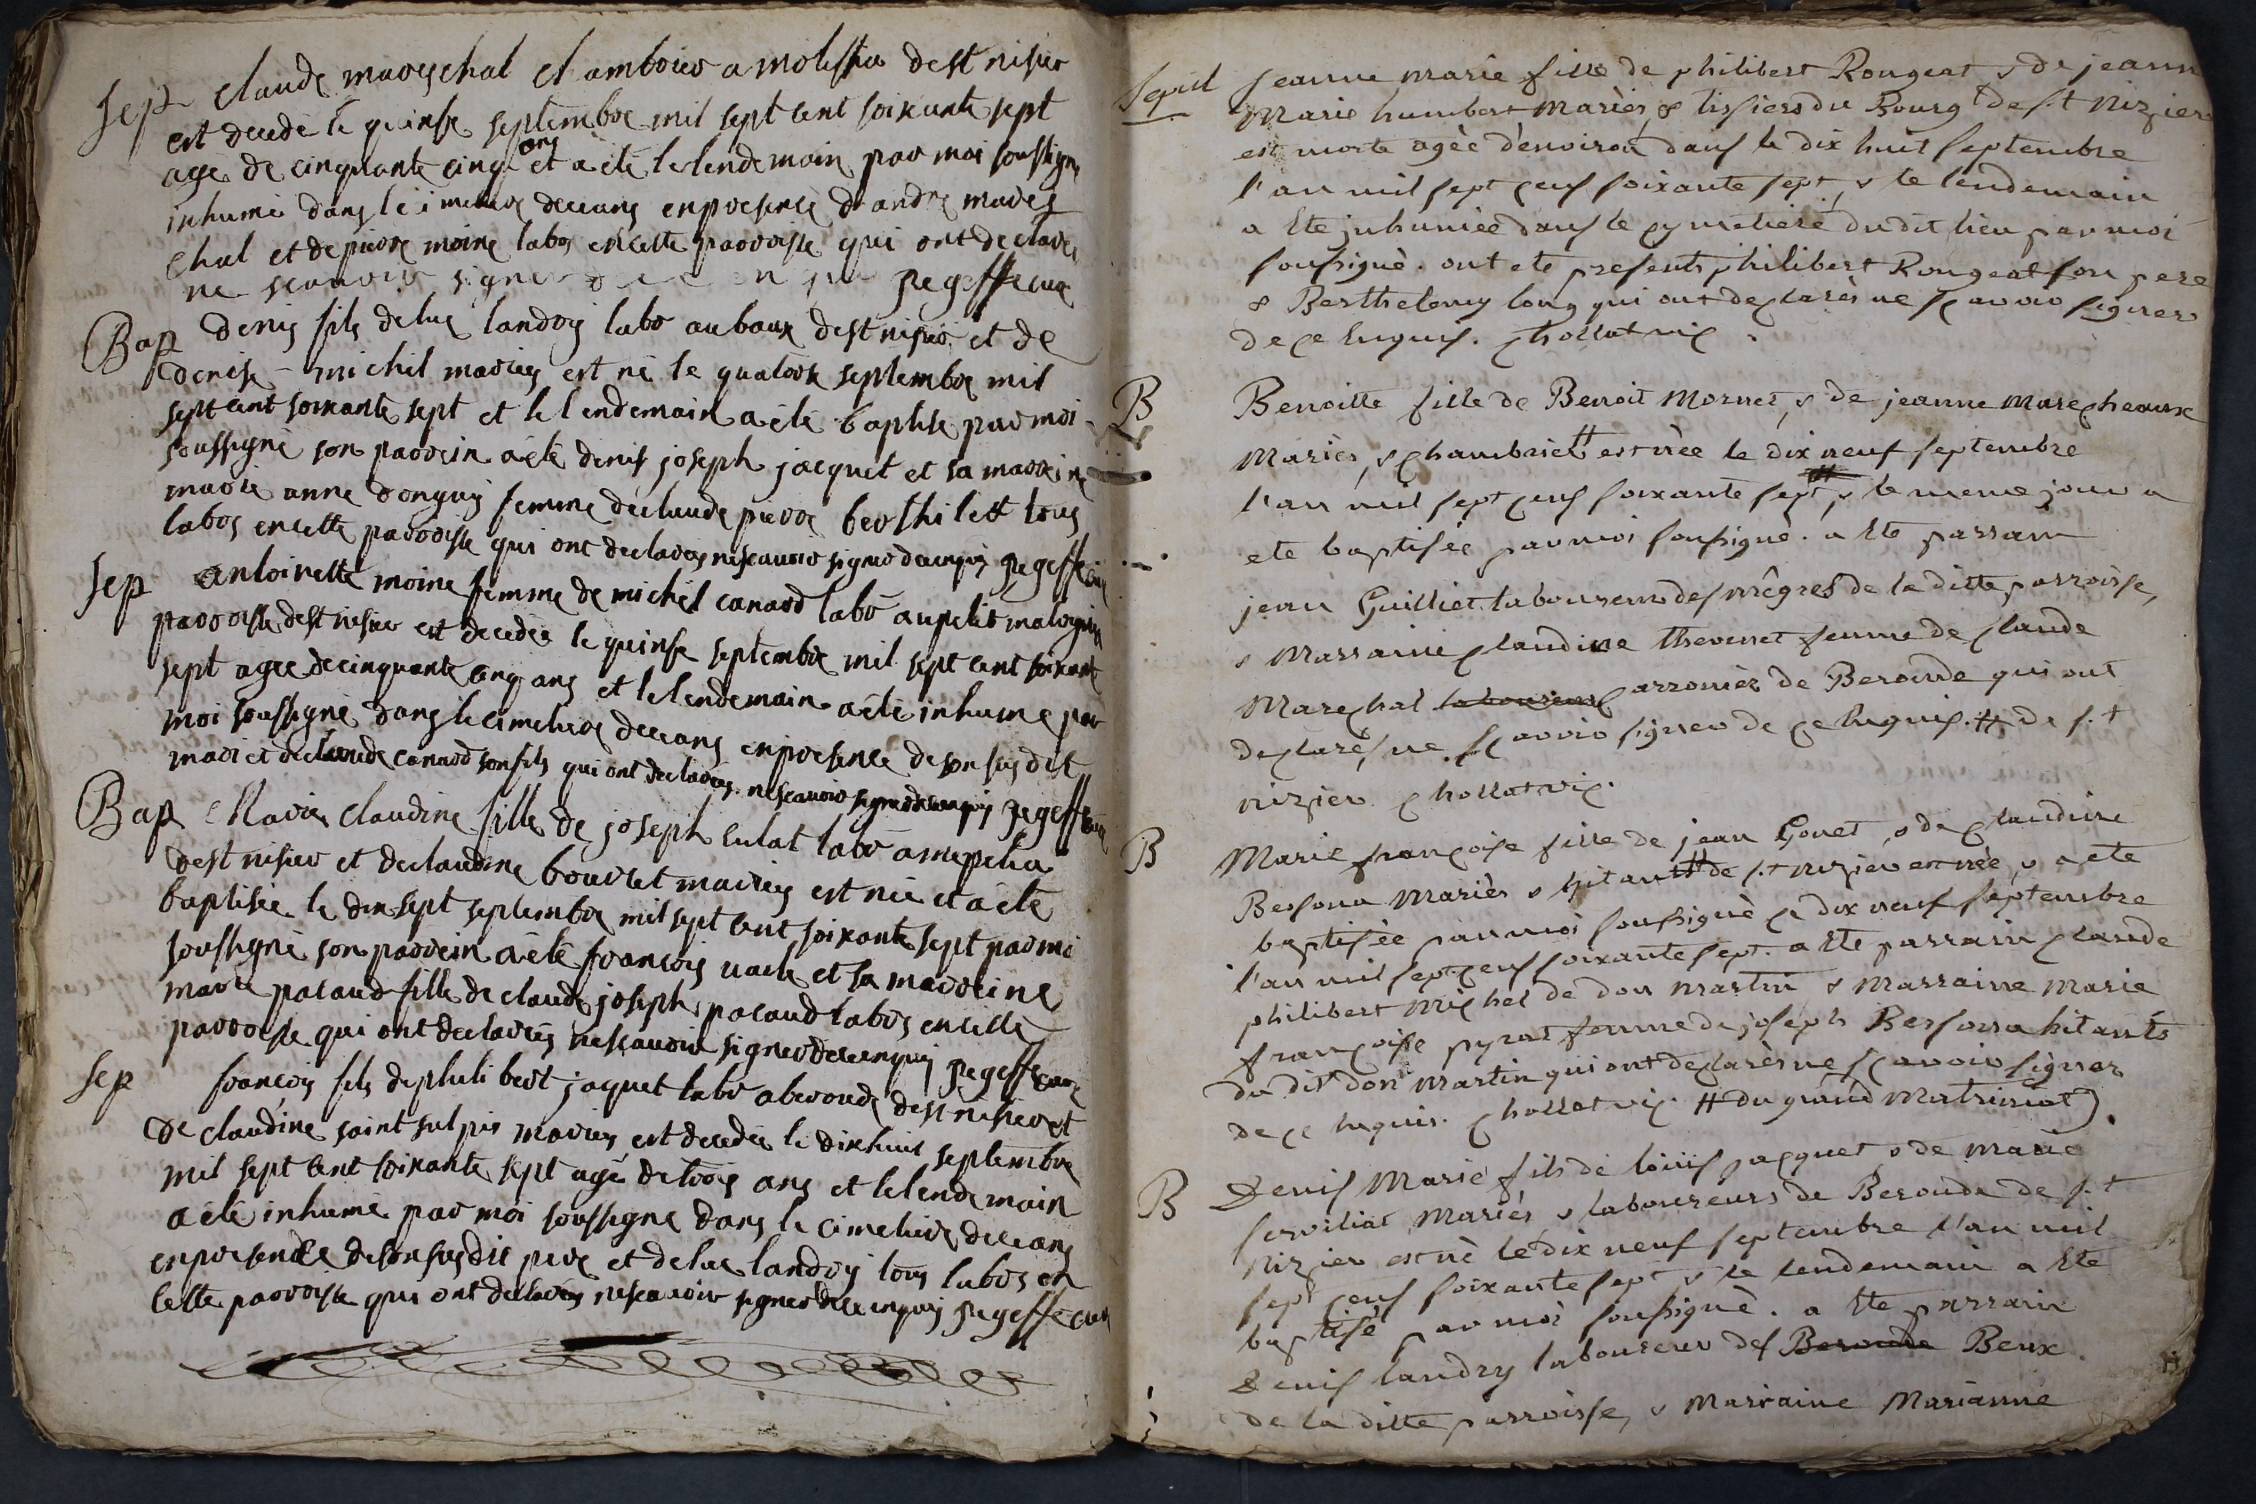 Sep claude mareschal chambrier a molissia de st nisier
est decede le quinse septembre mil sept cent soixante sept
agé de cinquante cinq ans et a été le lendemain par moi soussigne
inhumé dans le cimetiere deceans en presence d'andre mares
chal et de pierre moine labos en cette parroisse qui ont declarés
ne scauoir signer
Bap denis fils de luc landry labo au baux de st nisier et de
denise michel mariés est né le quatorse septembre mil
sept cent soixante sept et le lendemain a été baptisé par moi
soussigné son parrein a été denis joseph jacquet et sa marreine
marie anne donguy femme de claude pierre berthilett tous
labos en cette parroisse qui ont declarés ne scauoir signer de ce enquis
Sep antoinette moine femme de michel canard labo au petit
parroisse de st nisier est decedée le quinse septembre mil sept cent soixante
sept agee de cinquante cinq ans et le lendemain a été inhumé par
moi soussigné dans le cimetiere deceans en presence de son susdit
mari et de claude canard son fils qui ont declarés ne scauoir signer de ce enquis
Bap Marie claudine fille de joseph culat labo a mepelia
de st nisier et de claudine bourset mariés est née et a été
baptisée le dix sept septembre mil sept cent soixante sept par moi
soussigné son parrein a été francois uach et sa marreine
marie pacaud fille de claude joseph pacaud labos en cette
parroisse qui ont declarés ne scauoir signer de ce enquis
Sep francois fils de philibert jaquet labo a beroude de st nisier et
de claudine saint sulpis mariés est decedée le dixhuit septembre
mil sept cent soixante sept agé de trois ans et le lendemain
a été inhumé par moi soussigne dans le cimetiere deceans
en presence de son susdit pere et de luc landry tous labos en
cette parroisse qui ont declarés ne scauoir signer de ce enquis
Sepul jeanne marie fille de philibert Rongeat & de jeanne
Marie humbert Mariés, & tissiers du Bourg de s.t Nizier
est morte agèe d'environ dans le dix huit septembre
l'an mil sept cens soixante sept, & le lendemain
a ete jnhumèe dans le cymetiere du dit lieu par moi
soussignè. ont ete presents philibert Rongeat son pere
& Barthelemy long qui ont declarès ne scavoir signer
de ce enquis. chollat vic.
B Benoitte fille de Benoit Mornet, & de jeanne Marecheaux
Mariès, & chambriers # est nèe le dix neuf septembre
l'an mil sept cens soixante sept, & le meme jour a
ete baptisèe par moi soussignè. a ete parrain
jean Guilliet laboureur des nègres de la ditte parroisse,
& Marraine claudine thevenet femme de claude
Marechal laboureur carronier de Beroude qui ont
declarès ne scavoir signer de ce enquis. # de s.t
nizier chollat vic.
B Marie françoise fille de jean Gouet, & de claudine
Bersona Mariès & hitants # de s.t nizier est nèe, & a ete
baptisèe par moi soussignè ce dix neuf septembre
l'an mil sept cens soixante sept. a ete parrain claude
philibert Michel de don martin & Marraine marie
françoise pyrat femme de joseph Bersona hitants
du dit don martin qui ont declarès ne scavoir signer
de ce enquis. chollat vic. # du grand Montrinsat).
B Denis Marie fils de loüis jacquet, & de marie
serviliat Mariès & laboureurs de Beroude de s.t
nizier est nè le dix neuf septembre l'an mil
sept cens soixante sept & le lendemain a ete
baptisè par moi soussignè. a ete parrain
Denis landry laboureur des Beroude Beux
de la ditte parroisse, & Marraine Marianne